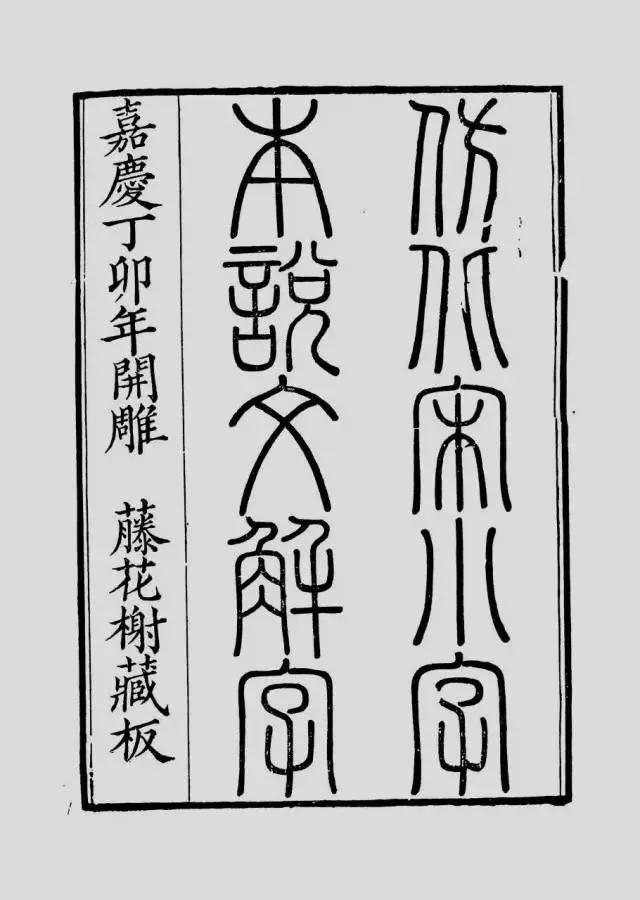 仿北宋小字
本說文解字
嘉慶丁卯年開雕　藤花榭藏板